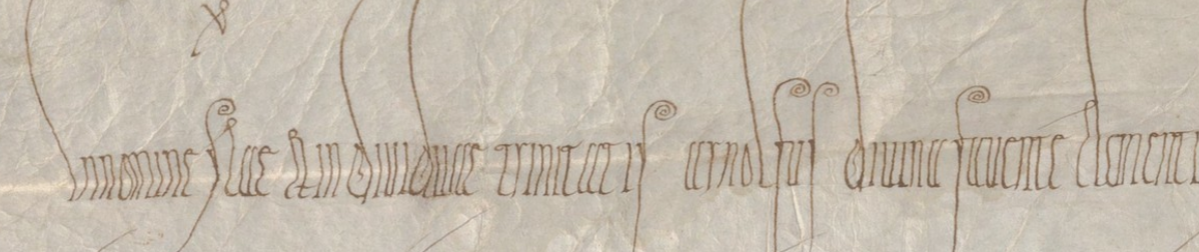 in nomine scae & indiuiduae trinitatis arnolfus diuina fauente clementi